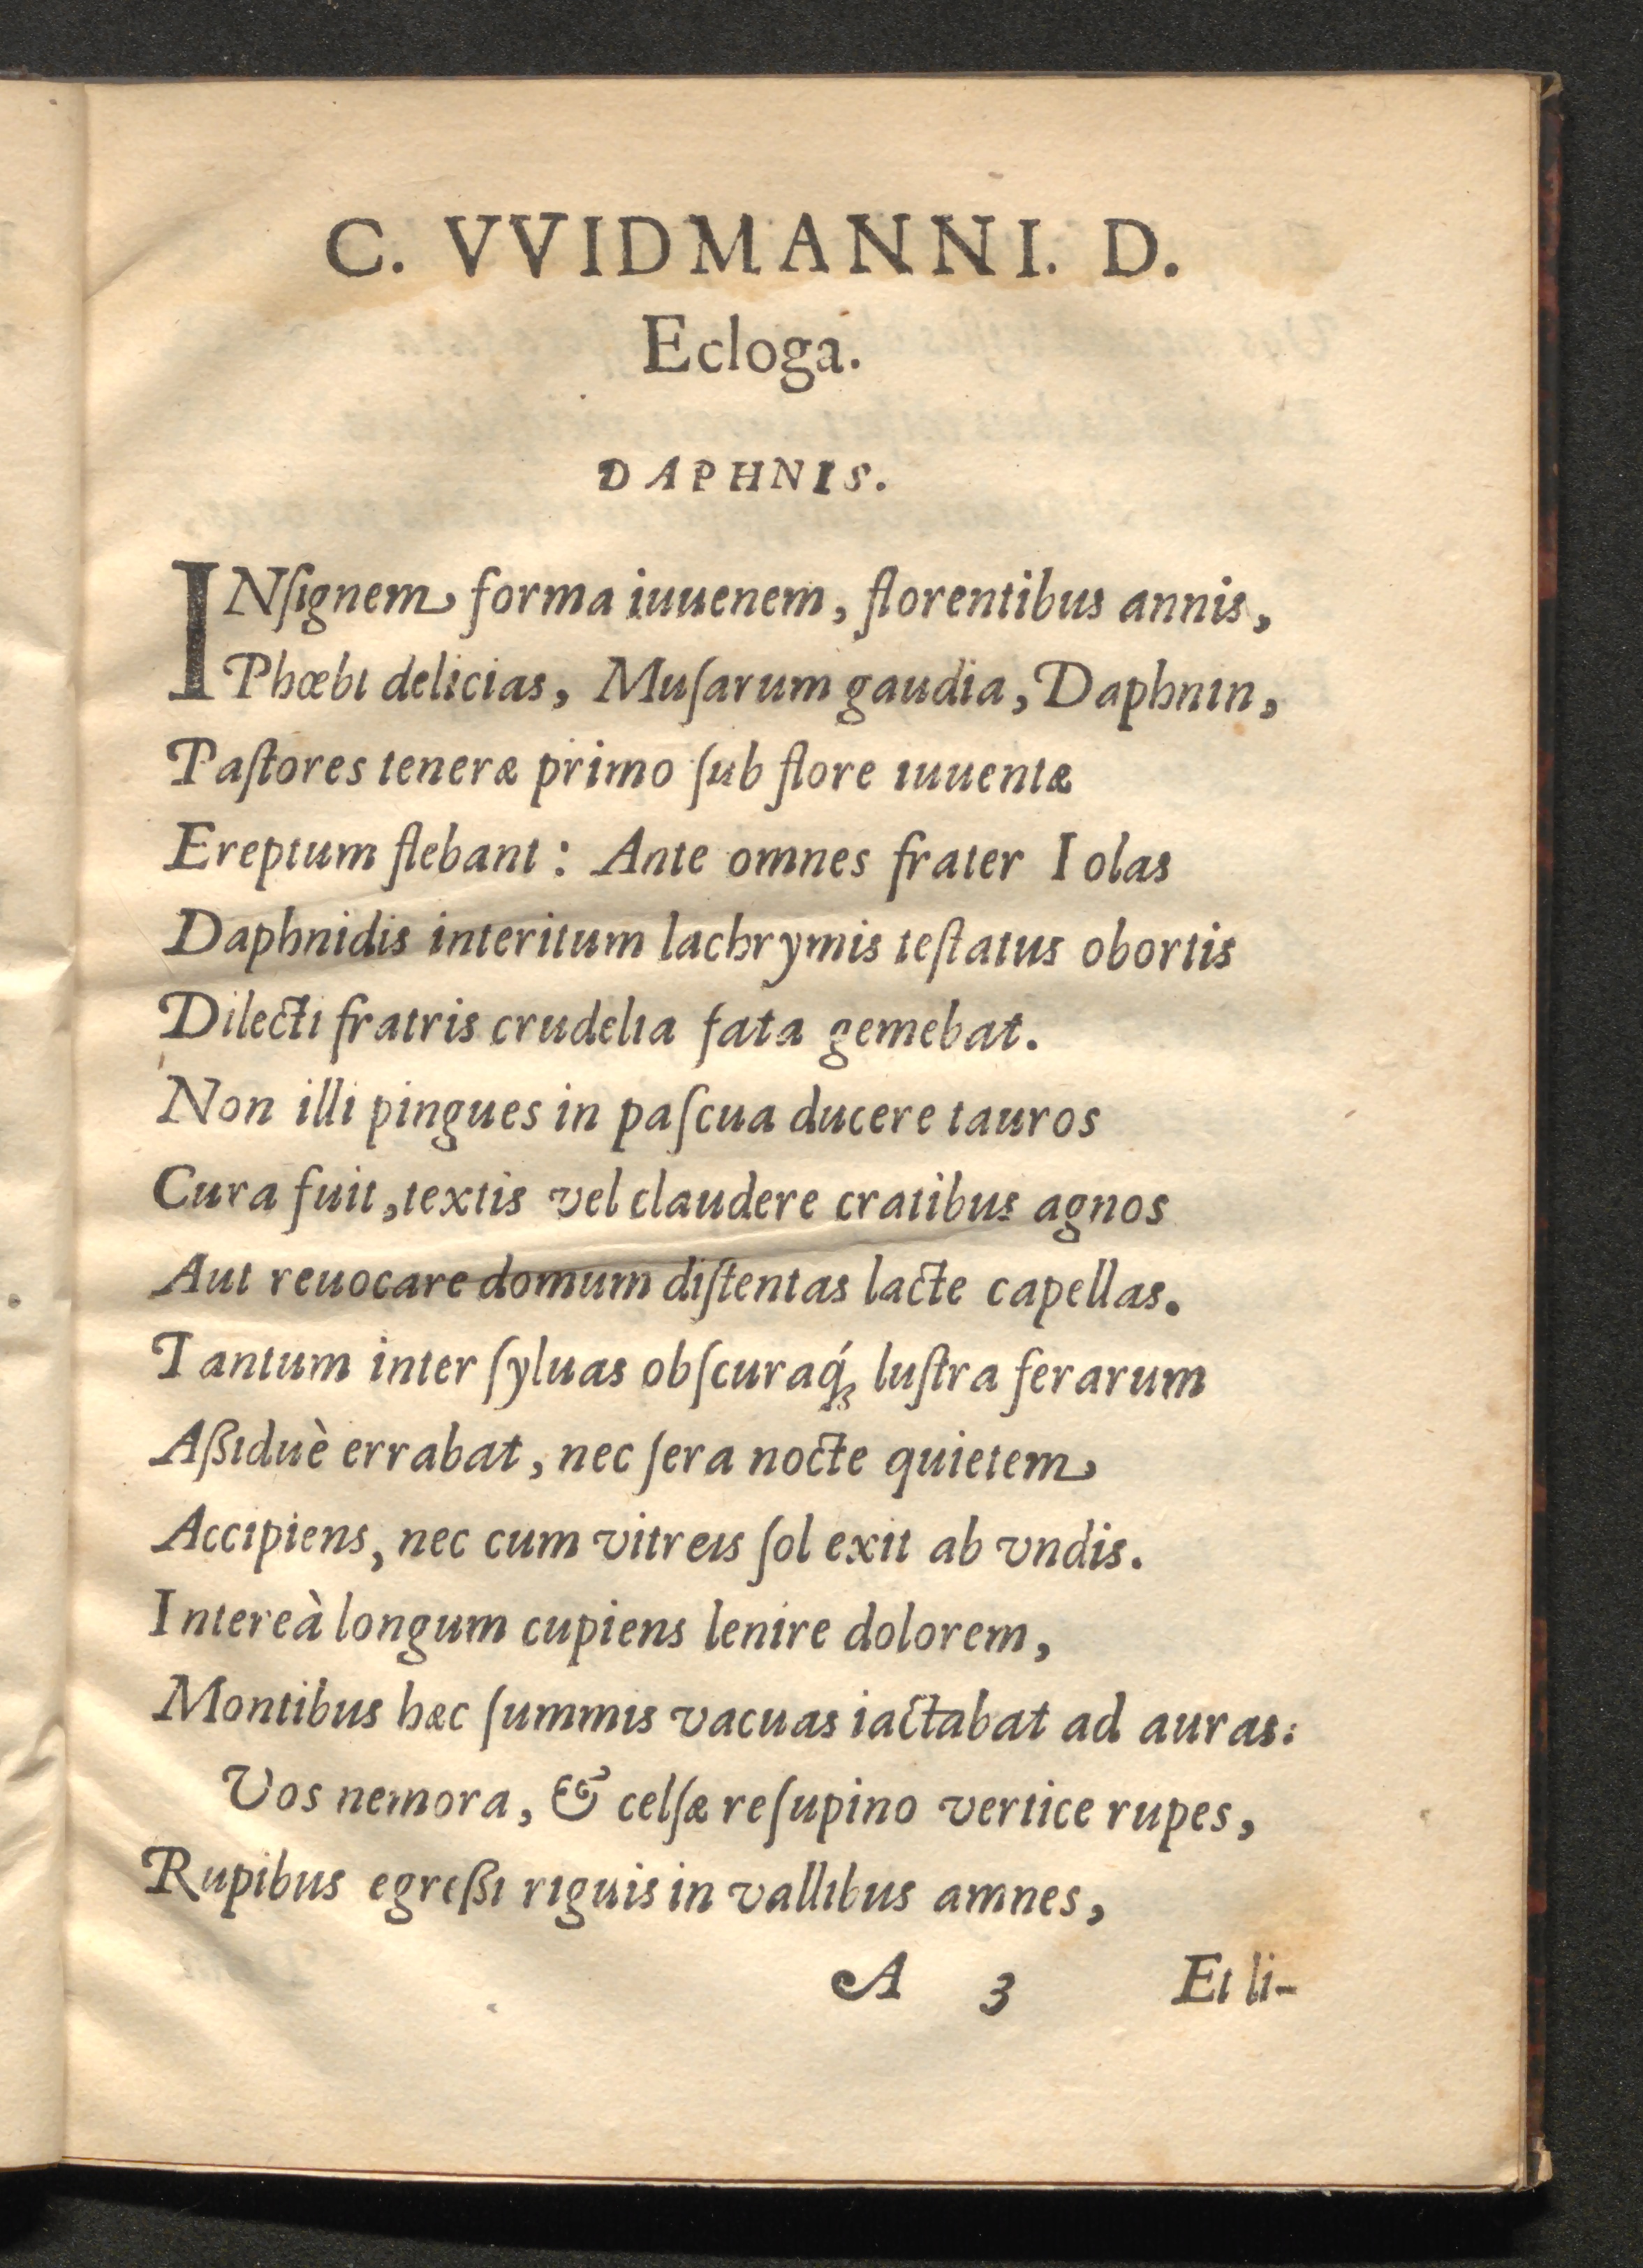 C. VVIDMANNI. D.
Ecloga.
DAPHNIS.
INſignem forma iuuenem, florentibus annis,
Phœbi delicias, Muſarum gaudia, Daphnin,
Paſtores teneræ primo ſub flore iuuentæ
Ereptum flebant: Ante omnes frater Iolas
Daphnidis interitum lachrymis teſtatus obortis
Dilecti fratris crudelia fata gemebat.
Non illi pingues in paſcua ducere tauros
Cura fuit, textis vel claudere cratibus agnos
Aut reuocare domum diſtentas lacte capellas.
Tantum inter ſyluas obſcuraq́; luſtra ferarum
Aßiduè errabat, nec ſera nocte quietem
Accipiens, nec cum vitreis ſol exit ab vndis.
Intereà longum cupiens lenire dolorem,
Montibus hæc ſummis vacuas iactabat ad auras:
Vos nemora, & celſæ reſupino vertice rupes,
Rupibus egreßi riguis in vallibus amnes,
A 3 Et li-